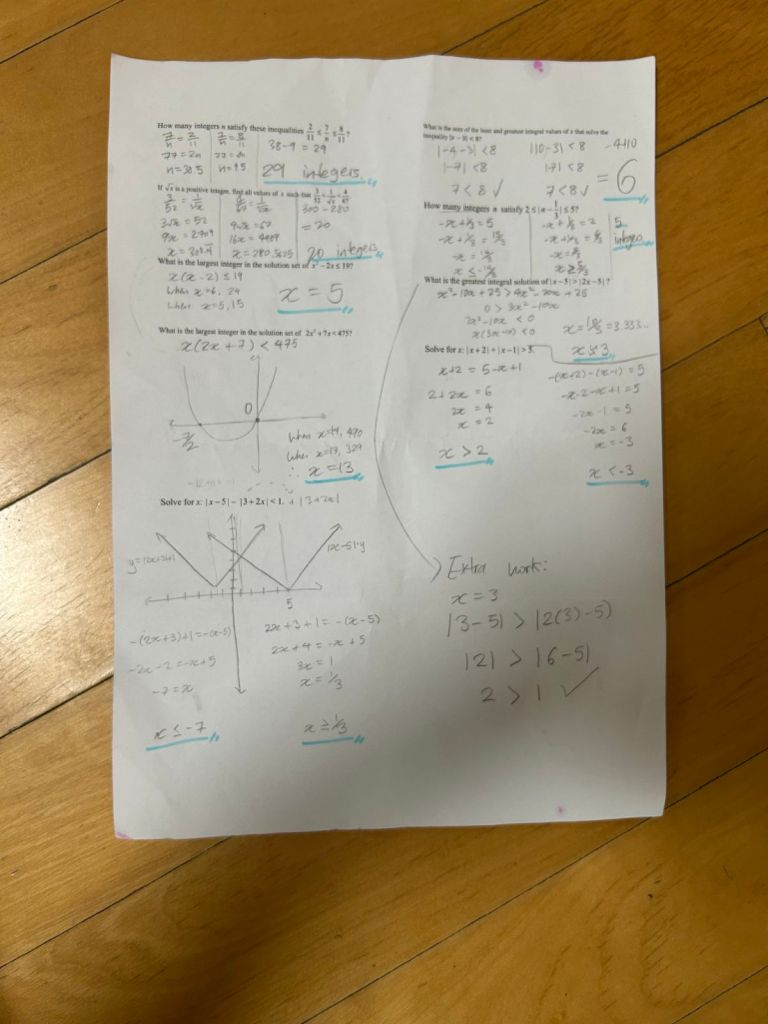 How many integers n satisfy these inequalities 2/11 ≤ 7/n ≤ 8/11?
7/n = 2/11 7/n = 8/11 38-9 = 29
77 = 2n
n = 38.5 n = 9.5 29 integers.
If √x is a positive integer, find all values of x such that 3/52 < 1/√x < 4/67
3/52 = 1/√x 4/67 = 1/√x 300-280
3√x = 52 4√x = 67 = 20
9x = 2704 16x = 4489
x = 280.5625 20 integers
What is the largest integer in the solution set of x² – 2x ≤ 19?
x(x-2) ≤ 19
when x=6, 24
when x=5, 15 x = 5
What is the largest integer in the solution set of 2x² + 7x < 475?
x(2x+7) < 475
0
-7/2
When x=14, 490
When x=13, 329
∴ x = 13
Solve for x: |x – 5| – |3 + 2x| < 1. + |3+2x|
|x-5|=y
5
-(2x+3)+1=-(x-5) 2x+3+1=-(x-5)
-2x-2=-x+5 2x+4=-x+5
-7=x 3x=1
x=1/3
x ≤ -7 x ≥ 1/3
What is the sum of the least and greatest integral values of x that solve the
inequality |x – 3| < 8?
|-4-3| <8 |10-3| <8 -4+10
|-7| <8 |7| <8 = 6
7 < 8 ✓ 7 < 8 ✓
How many integers n satisfy 2 ≤ |n – 1/3| ≤ 5?
-x+1/3 = 5 -x+1/3 = 2 5
integers
What is the greatest integral solution of |x – 5| > |2x – 5|?
x²-10x+25 > 4x²-20x+25
0 > 3x²-10x
3x²-10x < 0
x(3x-10) < 0 x=10/3 =3.333...
Solve for x: |x + 2| + |x – 1| > 5.
x+2 = 5-x+1 -(x+2)-(x-1)=5
2+2x = 6 -x-2-x+1=5
2x = 4 -2x-1=5
x = 2 -2x=6
x=-3
x > 2 x < -3
Extra work:
x = 3
|3-5| > |2(3)-5)
|2| > |6-5|
2 > 1 ✓